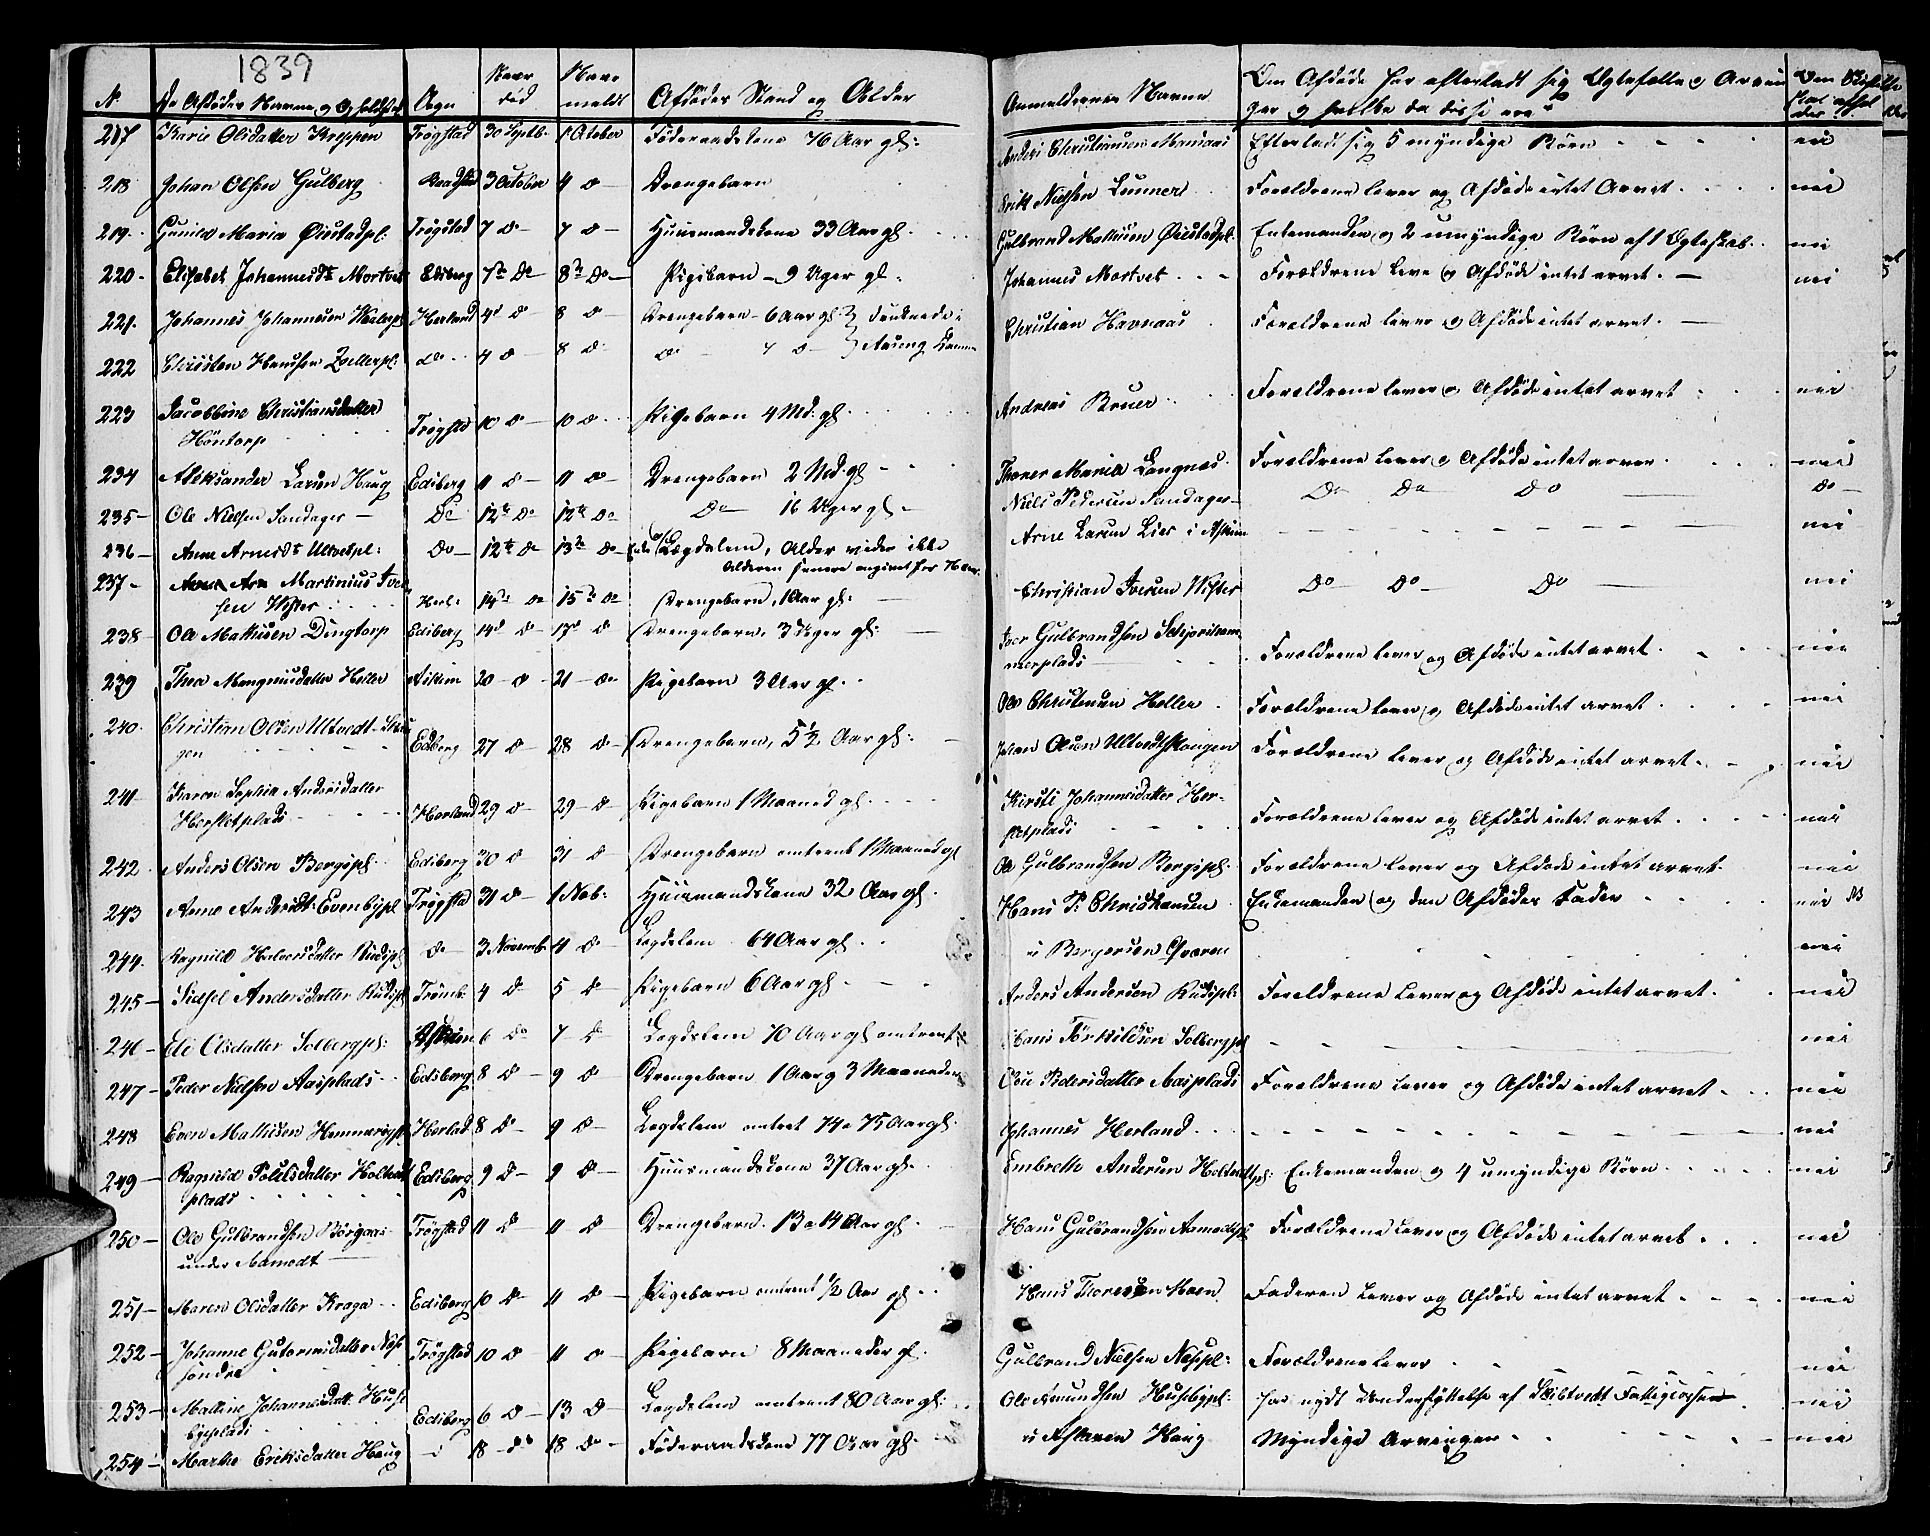 1839
N. De Afdødes Navne og Opholdsted Sogn Naar død Naar meldt Afdødes Stand og Alder Anmelderens Navne Den Afdøde har efterladt sig Egtefelle o Arvinger og hvilke da disse ere
217 Karie Olsdatter Kroppen Trøgstad 30 Septb. 1 October Føderaadskone 76 Aar gl: Anders Christiansen Monsaas Efterladt sig 5 myndige Børn nei
218 Johan Olsen Gulberg Baadstad 3 October 4 do Drengebarn Erik Nielsen Lunner Forældrene lever og Afdøde intet Arvet nei
219 Gunild Maria Øiestadpl: Trøgstad 7 do 7 do Huusmandskone 33 Aar gl. Gulbrand Mathisen Øiestadpl. Enkemanden og 2 umyndige Børn af 1 Egteskab nei
220 Elisabet Johannesdt Mortvet Edsberg 7de do 8de do Pigebarn 9 Uger gl: Johannes Mortvet Forældrene leve og Afdøde intet arvet nei
221 Johannes Johannesen Herland 4d do 8 do Drengebarn 6 Aar gl: druknede i Christian Havnaas Forældrene lever og Afdøde intet arvet
222 Christen Hansen do 4 do 8 do do 7 do
223 Jacobbine Christiansdatter Trøgstad 10 do 10 do Pigebarn 4 Md: gl. Andreas Bruer Forældrene lever og Afdøde intet arvet nei
Høntorp
234 Aleksander Larsen Haug Edsberg 11 do 11 do Drengebarn 2 Md: gl Thorer Maria Langnæs Forældrene lever og Afdøde intet arver nei
235 Ole Nielsen Sandager do 12te do 12te do do 16 Uger gl Niels Pedersen Sandager do do do do
236 Anne Arnesdt Ultvetpl: do 12te do 13de do Lægdslem, Alder vides ikke Arne Larsen Lier i Askim nei
Alderen senere angivet for
237 Martinius Iversen Wister Herl: 14de do 15de do Drengebarn, 1 Aar gl: Christian Iversen Wister do do do nei
238 Ole Mathisen Dingtorp Edsberg 14d do 17d do Drengebarn, 3 Uger gl: Iver Gulbrandsen Forældrene lever og Afdøde intet arvet nei
239 Thea Mangnusdatter Heller Askim 20 do 21 do Pigebarn 3 Aar gl. Ole Christensen Heller Forældrene lever og Afdøde intet arvet nei
240 Christian Olsen Ultvedt-Skougen Edsberg 27 do 28 do Drengebarn, 5½ Aar gl: Johan Olsen Ultvedtskougen Forældrene lever og Afdøde intet arvet nei
241 Karen Sophia Andersdatter Herland 29 do 29 do Pigebarn 1 Maaned gl. Kirsti Johannesdatter Her-
Hersletplads sletplads Forældrene lever og Afdøde intet arvet nei
242 Anders Olsen Bergspl. Edsberg 30 do 31 do Drengebarn omtrent 1 Maaned gl Ole Gulbrandsen Bergspl. Forældrene lever og Afdøde intet arvet nei
243 Anne Andersdt: Evenbypl Trøgstad 31 do 1 Nob: Huusmandskone 32 Aar gl. Hans P: Christiansen Enkemanden og den Afdødes Fader nei
244 Ragnild Halvorsdatter Rudspl do 3 Novemb. 4 do Legdslem 64 Aar gl. Bergersen Qværn nei
245 Sidsel Andersdatter Rudspl Trømb. 4 do 5 do Pigebarn 6 Aar gl. Anders Andersen Rudspl: Forældrene lever og Afdøde intet arvet nei
246 Eli Olsdatter Solbergpl: Askim 6 do 7 do Legdslem 70 Aar gl omtrent Hans Torkildsen Solbergpl nei
247 Peder Nielsen Aasplads Edsberg 8 do 9 do Drengebarn 1 Aar og 3 Maaneder Pedersdatter Aasplads Forældrene lever og Afdøde intet arvet nei
248 Even Mathisen Herlad 8 do 9 do Legdslem omtret 74 a 75 Aar gl. Johannes Herland nei
249 Ragnild Poulsdatter Holtvedtplads Edsberg 9 do 9 do Huusmandskone 37 Aar gl. Embreth Andersen Holtvedtpl: Enkemanden og 4 umyndige Børn nei
250 Ole Gulbrandsen Børgaas Trøgstad 11 do 11 do Drengebarn 13 a 14 Aar gl. Hans Gulbrandsen Aamodtpl Forældrene lever og Afdøde intet arvet nei
under Aamodt
251 Maren Olsdatter Kraga Edsberg 10 do 11 do Pigebarn omtrent ½ Aar gl. Hans Thoresen Moen Faderen lever og Afdøde intet arvet nei
252 Johanne Gutormsdatter Næs Trøgstad 10 do 11 do Pigebarn 8 Maaneder gl. Gulbrand Nielsen Næspl: Forældrene lever nei
søndre
253 Mathine Johannesdatt: Husebyeplads Edsberg 6 do 13 do Legdslem omtrent 80 Aar gl: Ole Amundsen Husebypl: har nydt Understøttelse af Skibtvedt Fattigcassen nei
254 Marthe Eriksdatter Haug 18 do 18 do Føderaadskone 77 Aar gl. Haug Myndige Arvinger nei